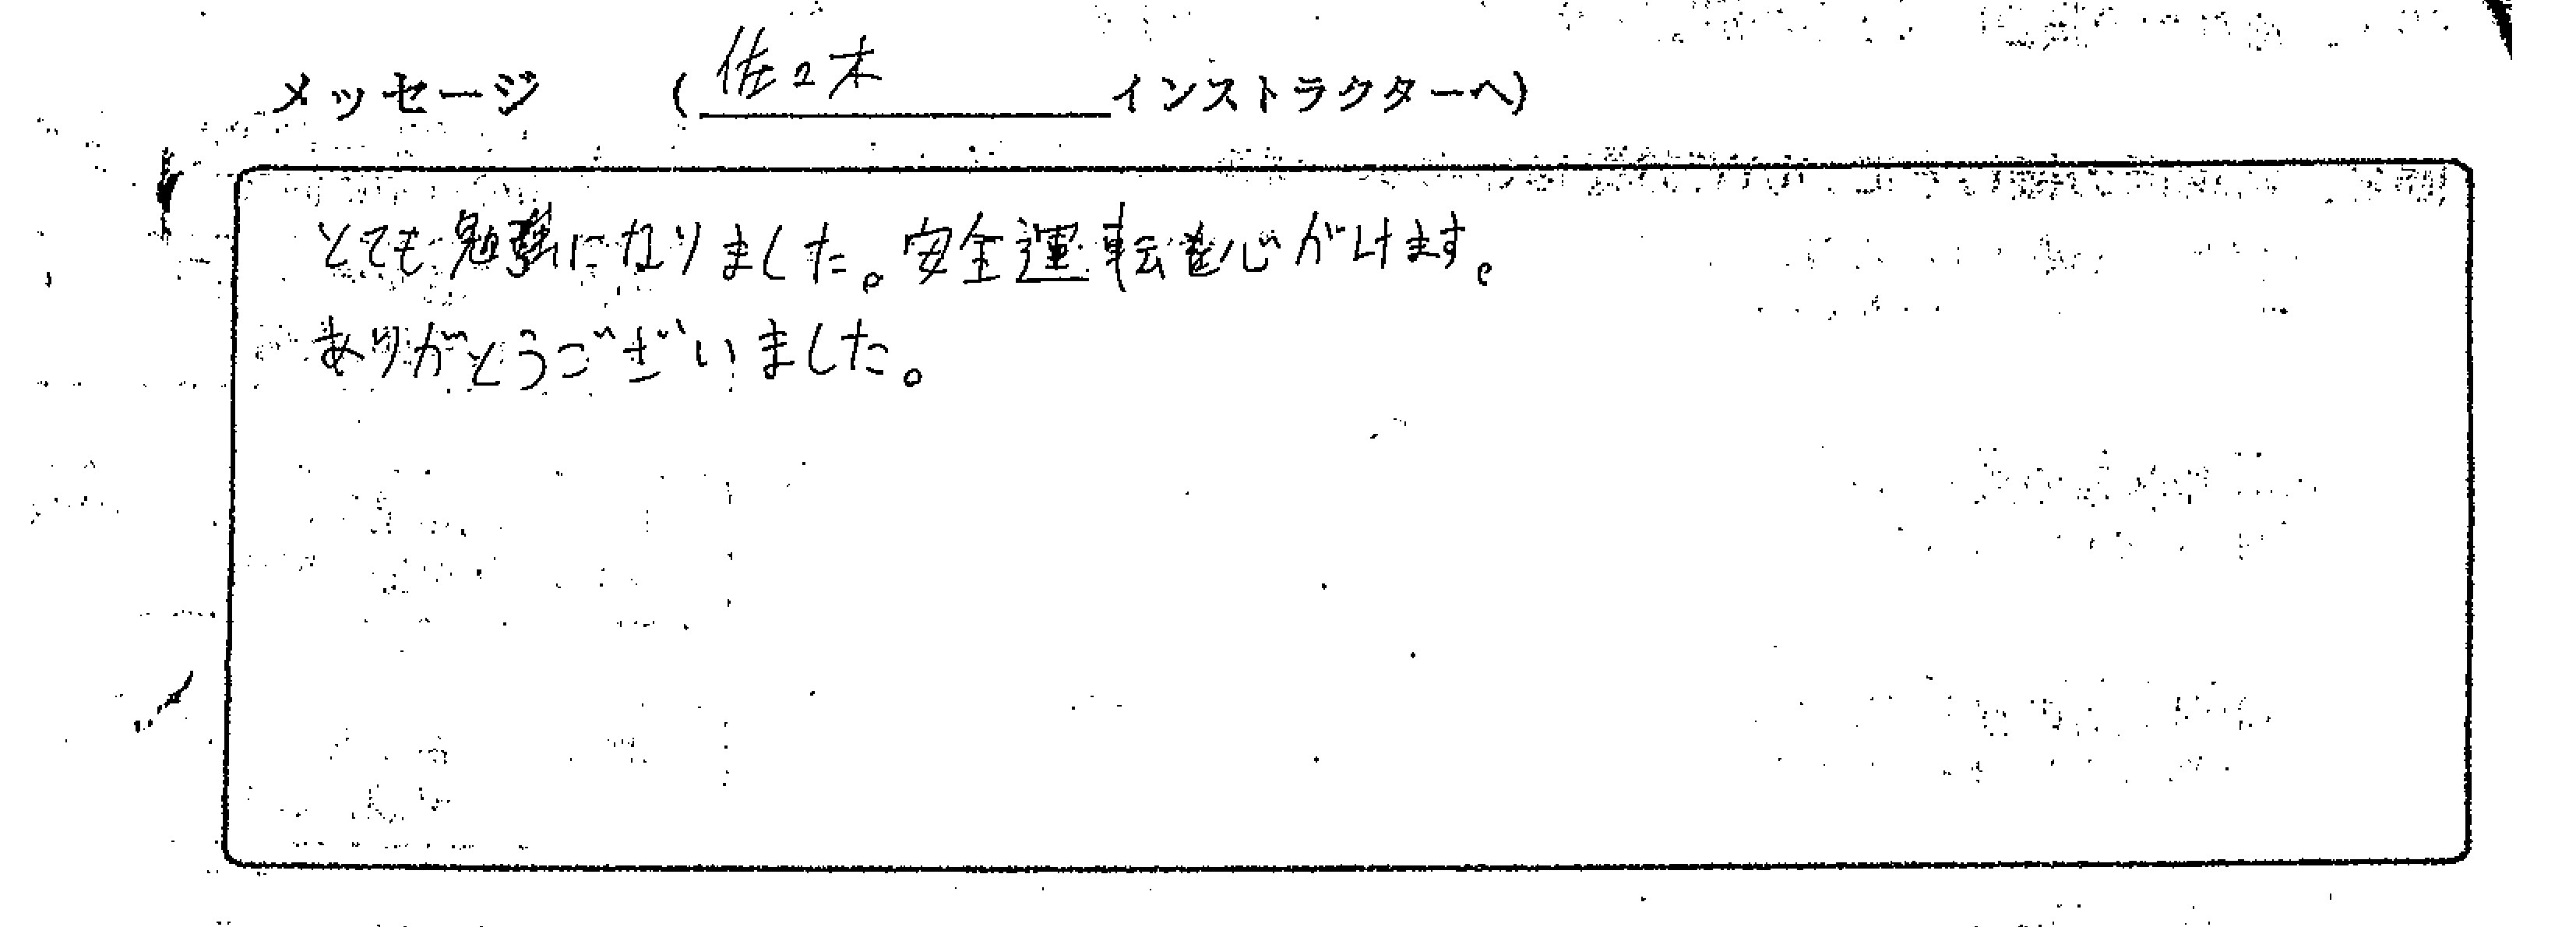 メッセージ （佐々木インストラクターへ）
とても勉強になりました。安全運転を心がけます。
ありがとうございました。